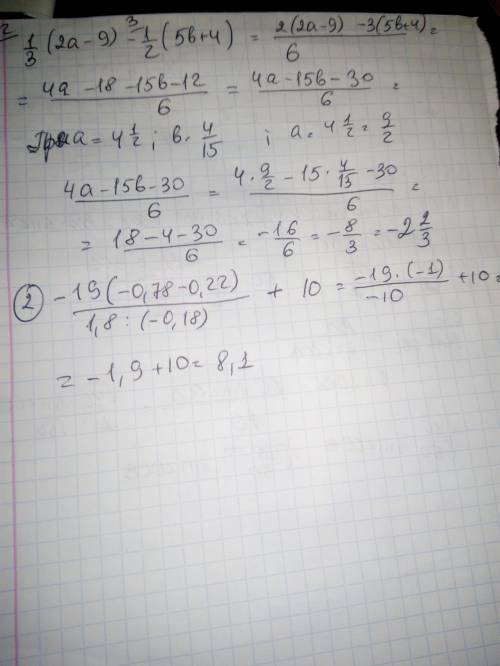 1/3 (2a-9) - 1/2 (5b+4) = 2(2a-9) -3(5b+4)/6 =
= 4a -18 -15b-12/6 = 4a-15b-30/6 =
При a= 4 1/2 ; b. 4/15 ; a= 4 1/2 = 9/2
4a-15b-30/6 = 4·9/2 - 15·4/15 -30/6 =
= 18-4-30/6 = -16/6 = -8/3 = -2 2/3
② -19(-0,78-0,22)/1,8:(-0,18) + 10 = -19·(-1)/-10 +10 =
= -1,9+10= 8,1